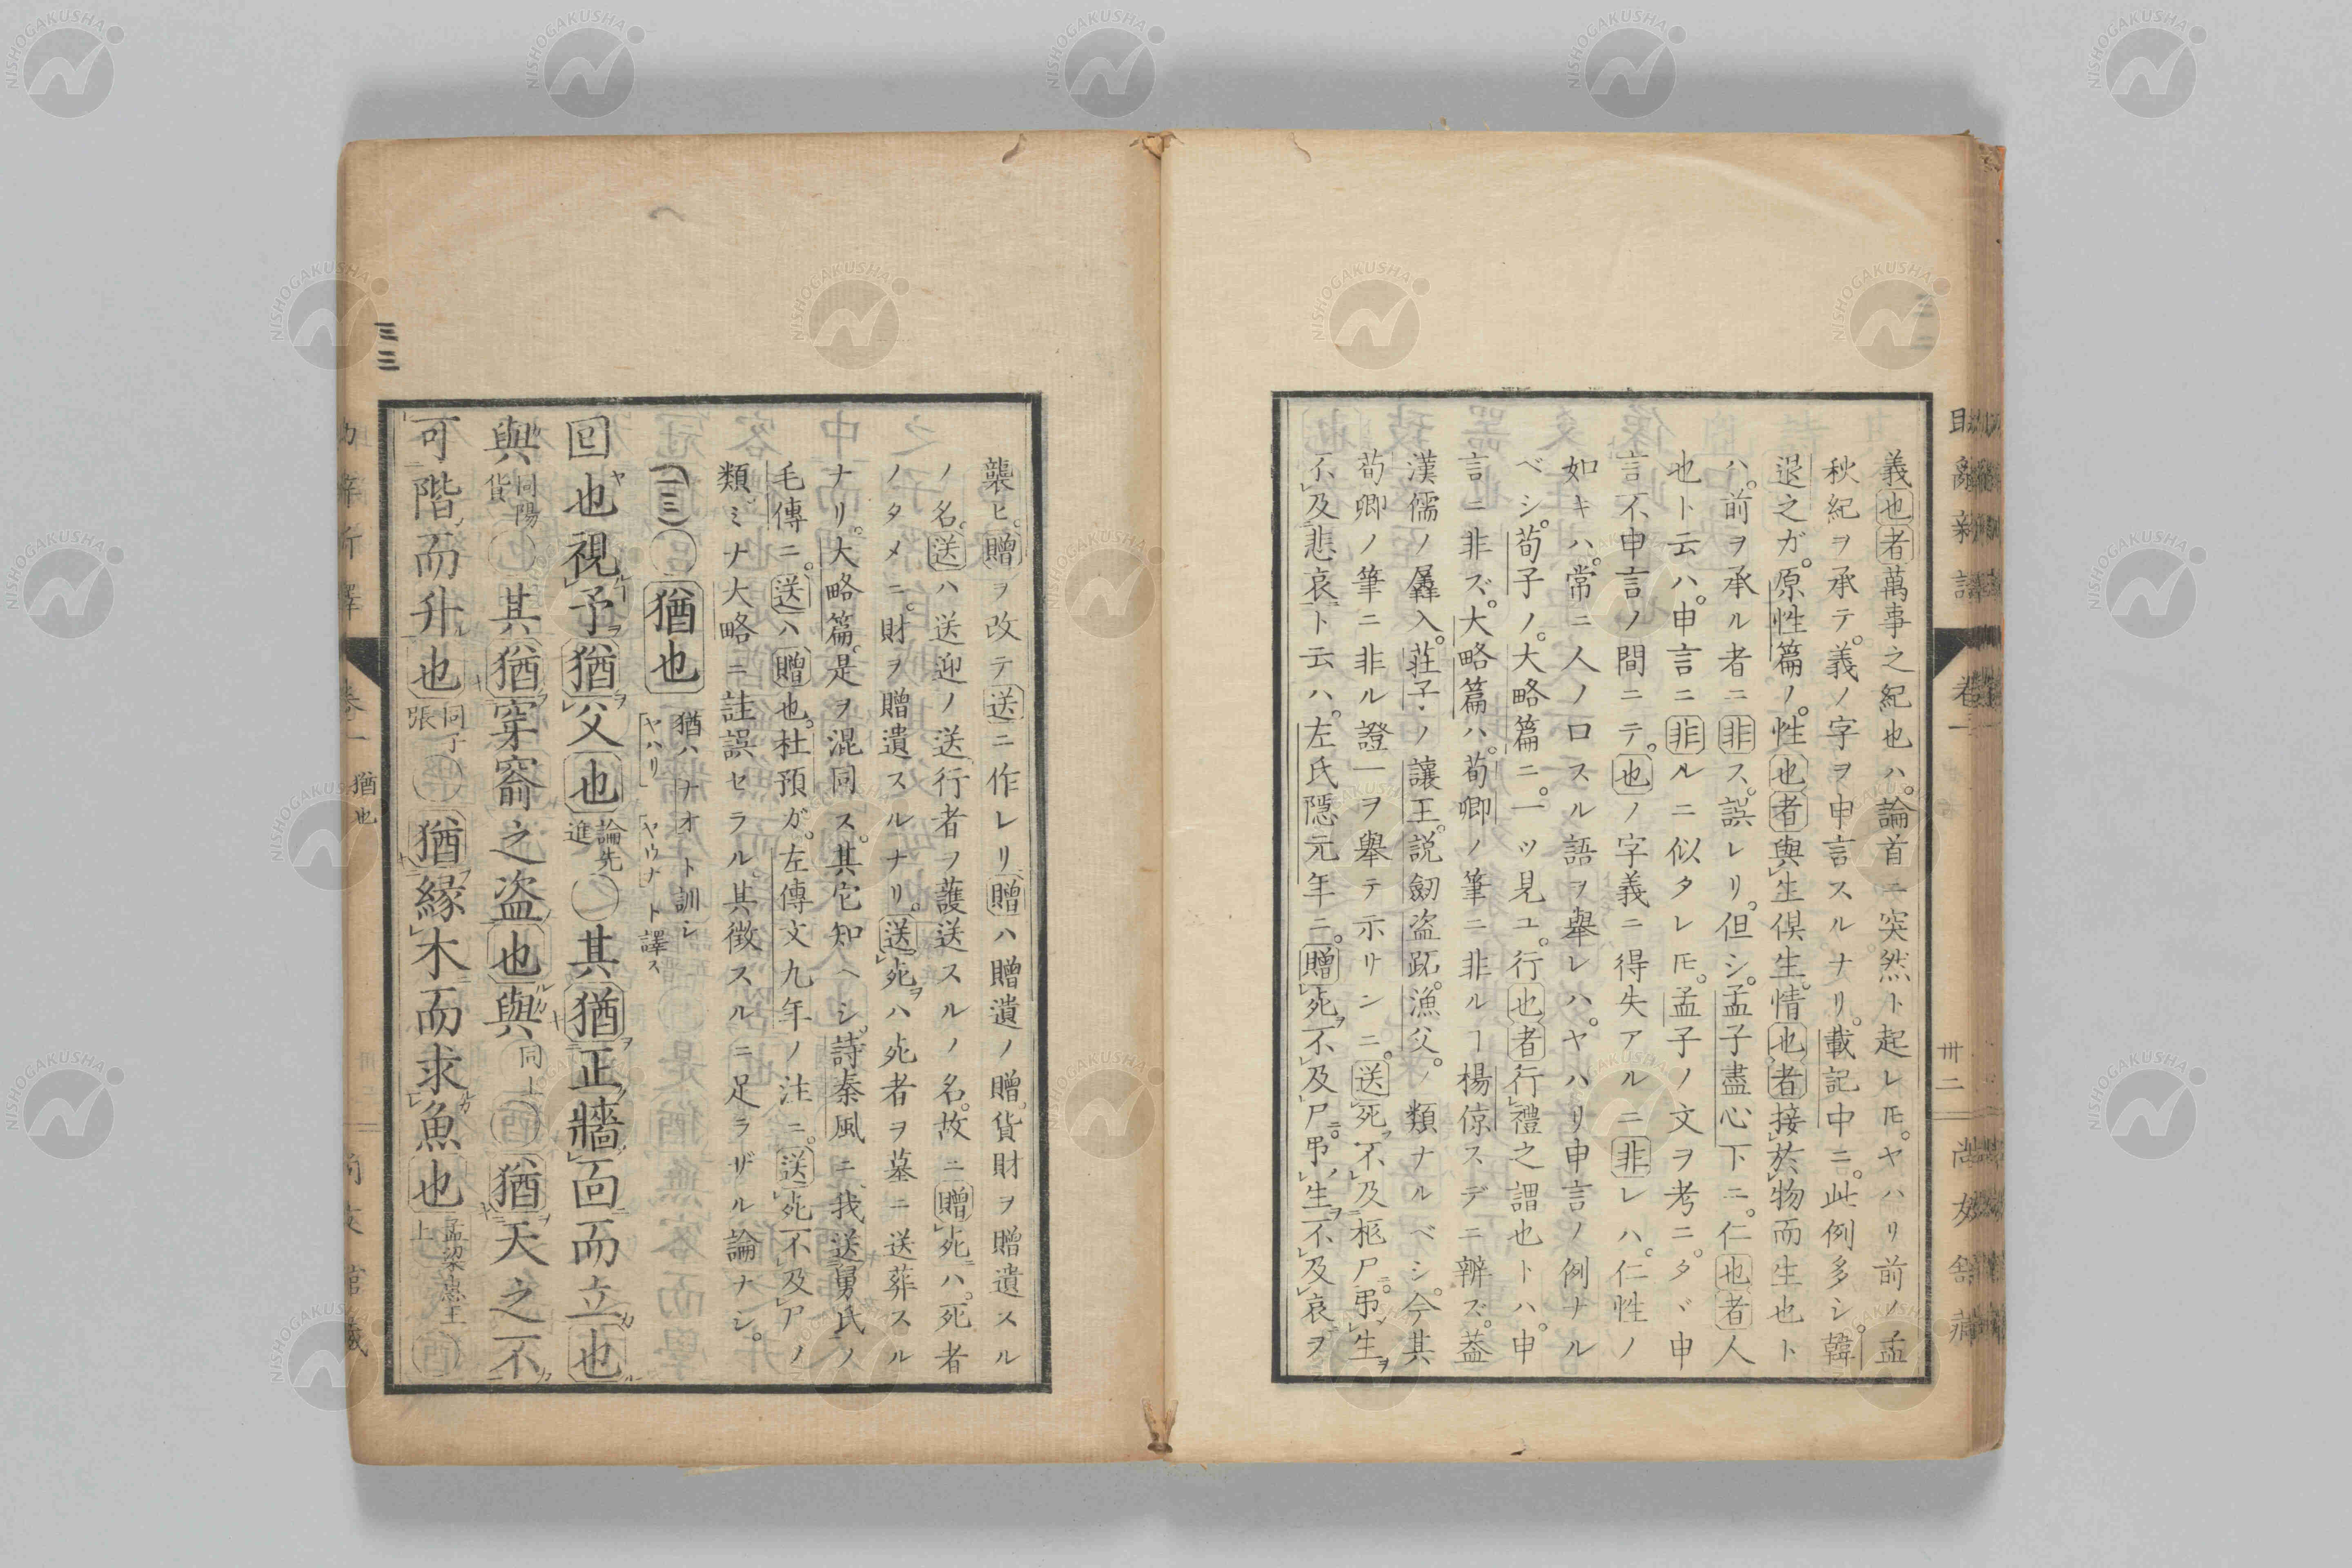 義也者萬事之紀也ハ。論首ニ突然ト起レ𪜈。ヤハリ前ノ孟
秋紀ヲ承テ。義ノ字ヲ申言スルナリ。載記中ニ。此例多シ。韓
退之ガ。原性篇ノ。性也者與生俱生。情也者接於物而生也ト
ハ。前ヲ承ル者ニ非ス。誤レリ。但シ。孟子盡心下ニ。仁也者人
也ト云ハ。申言ニ非ルニ似タレ𪜈。孟子ノ文ヲ考ニ。タヾ申
言不申言ノ間ニテ。也ノ字義ニ得失アルニ非レハ。仁性ノ
如キハ。常ニ人ノ口スル語ヲ舉レハ。ヤハリ申言ノ例ナル
ベシ。荀子ノ。大略篇ニ。一ツ見ユ。行也者行禮之謂也トハ。申
言ニ非ズ。大略篇ハ。荀卿ノ筆ニ非ルヿ楊倞スデニ辨ズ。葢
漢儒ノ羼入。莊子ノ讓王。說劒盜跖。漁父。ノ類ナルベシ。今其
荀卿ノ筆ニ非ル證一ヲ舉テ示サンニ。送死不及柩尸。弔生
不及悲哀ト云ハ。左氏隱元年ニ。贈死不及尸。弔生不及哀ヲ
助辭新譯 卷一 卅二 尚友舘藏
三三
襲ヒ。贈ヲ改テ送ニ作レリ贈ハ贈遺ノ贈。貨財ヲ贈遺スル
ノ名。送ハ送迎ノ送行者ヲ護送スルノ名。故ニ贈死ハ。死者
ノタメニ。財ヲ贈遺スルナリ。送死ハ死者ヲ墓ニ送葬スル
ナリ。大略篇。是ヲ混同ス。其它知ヘシ。詩秦風ニ我送舅氏ノ
毛傳ニ。送ハ贈也。杜預ガ。左傳文九年ノ注ニ。送死不及尸ノ
類。ミナ大略ニ註誤セラル。其徴スルニ足ラザル論ナシ。
(一三)○猶也 猶ハナオト訓レ
「ヤハリ」「ヤウナ」ト譯ス
回也視予猶父也 論先進 ○其猶正牆面而立也
與 同陽貨 ○其猶穿窬之盜也與 同上 ○猶天之不
可階而升也 同子張 ○猶緣木而求魚也 孟梁惠王上 ○
卷一 猶也